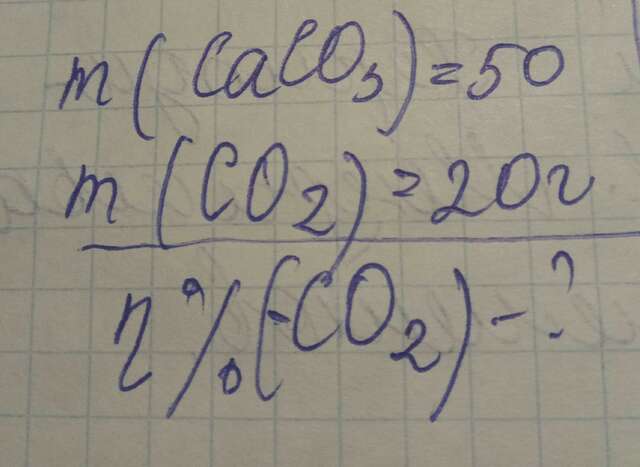 m(CaCO₃)=50
m(CO₂)=20г
η%(CO₂)-?